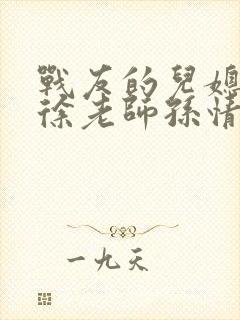 戰友的兒媳
徐老師孫情
一九天